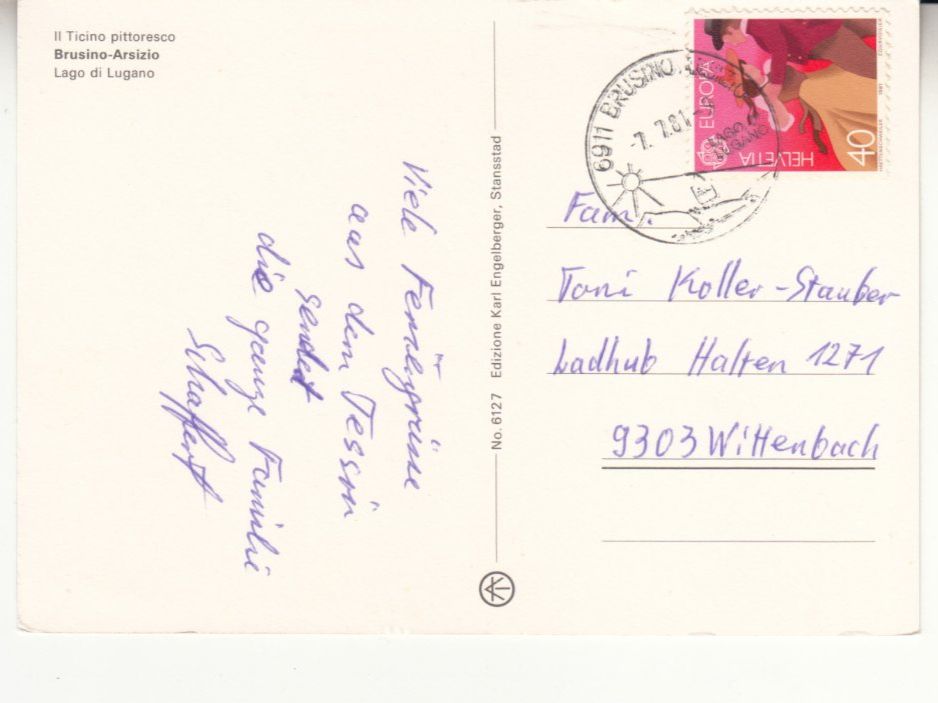 Il Ticino pittoresco
Brusino-Arsizio
Lago di Lugano
Viele Feriengrüsse
aus dem Tessin
sendet
die ganze Familie
No. 6127 Edizione Karl Engelberger, Stansstad
6911 BRUSINO
-7. 7.81-
LAGO DI
LUGANO
EUROPA
HELVETIA
40
1981
Fam.
Toni Koller-Stauber
Ladhub Halten 1271
9303 Wittenbach